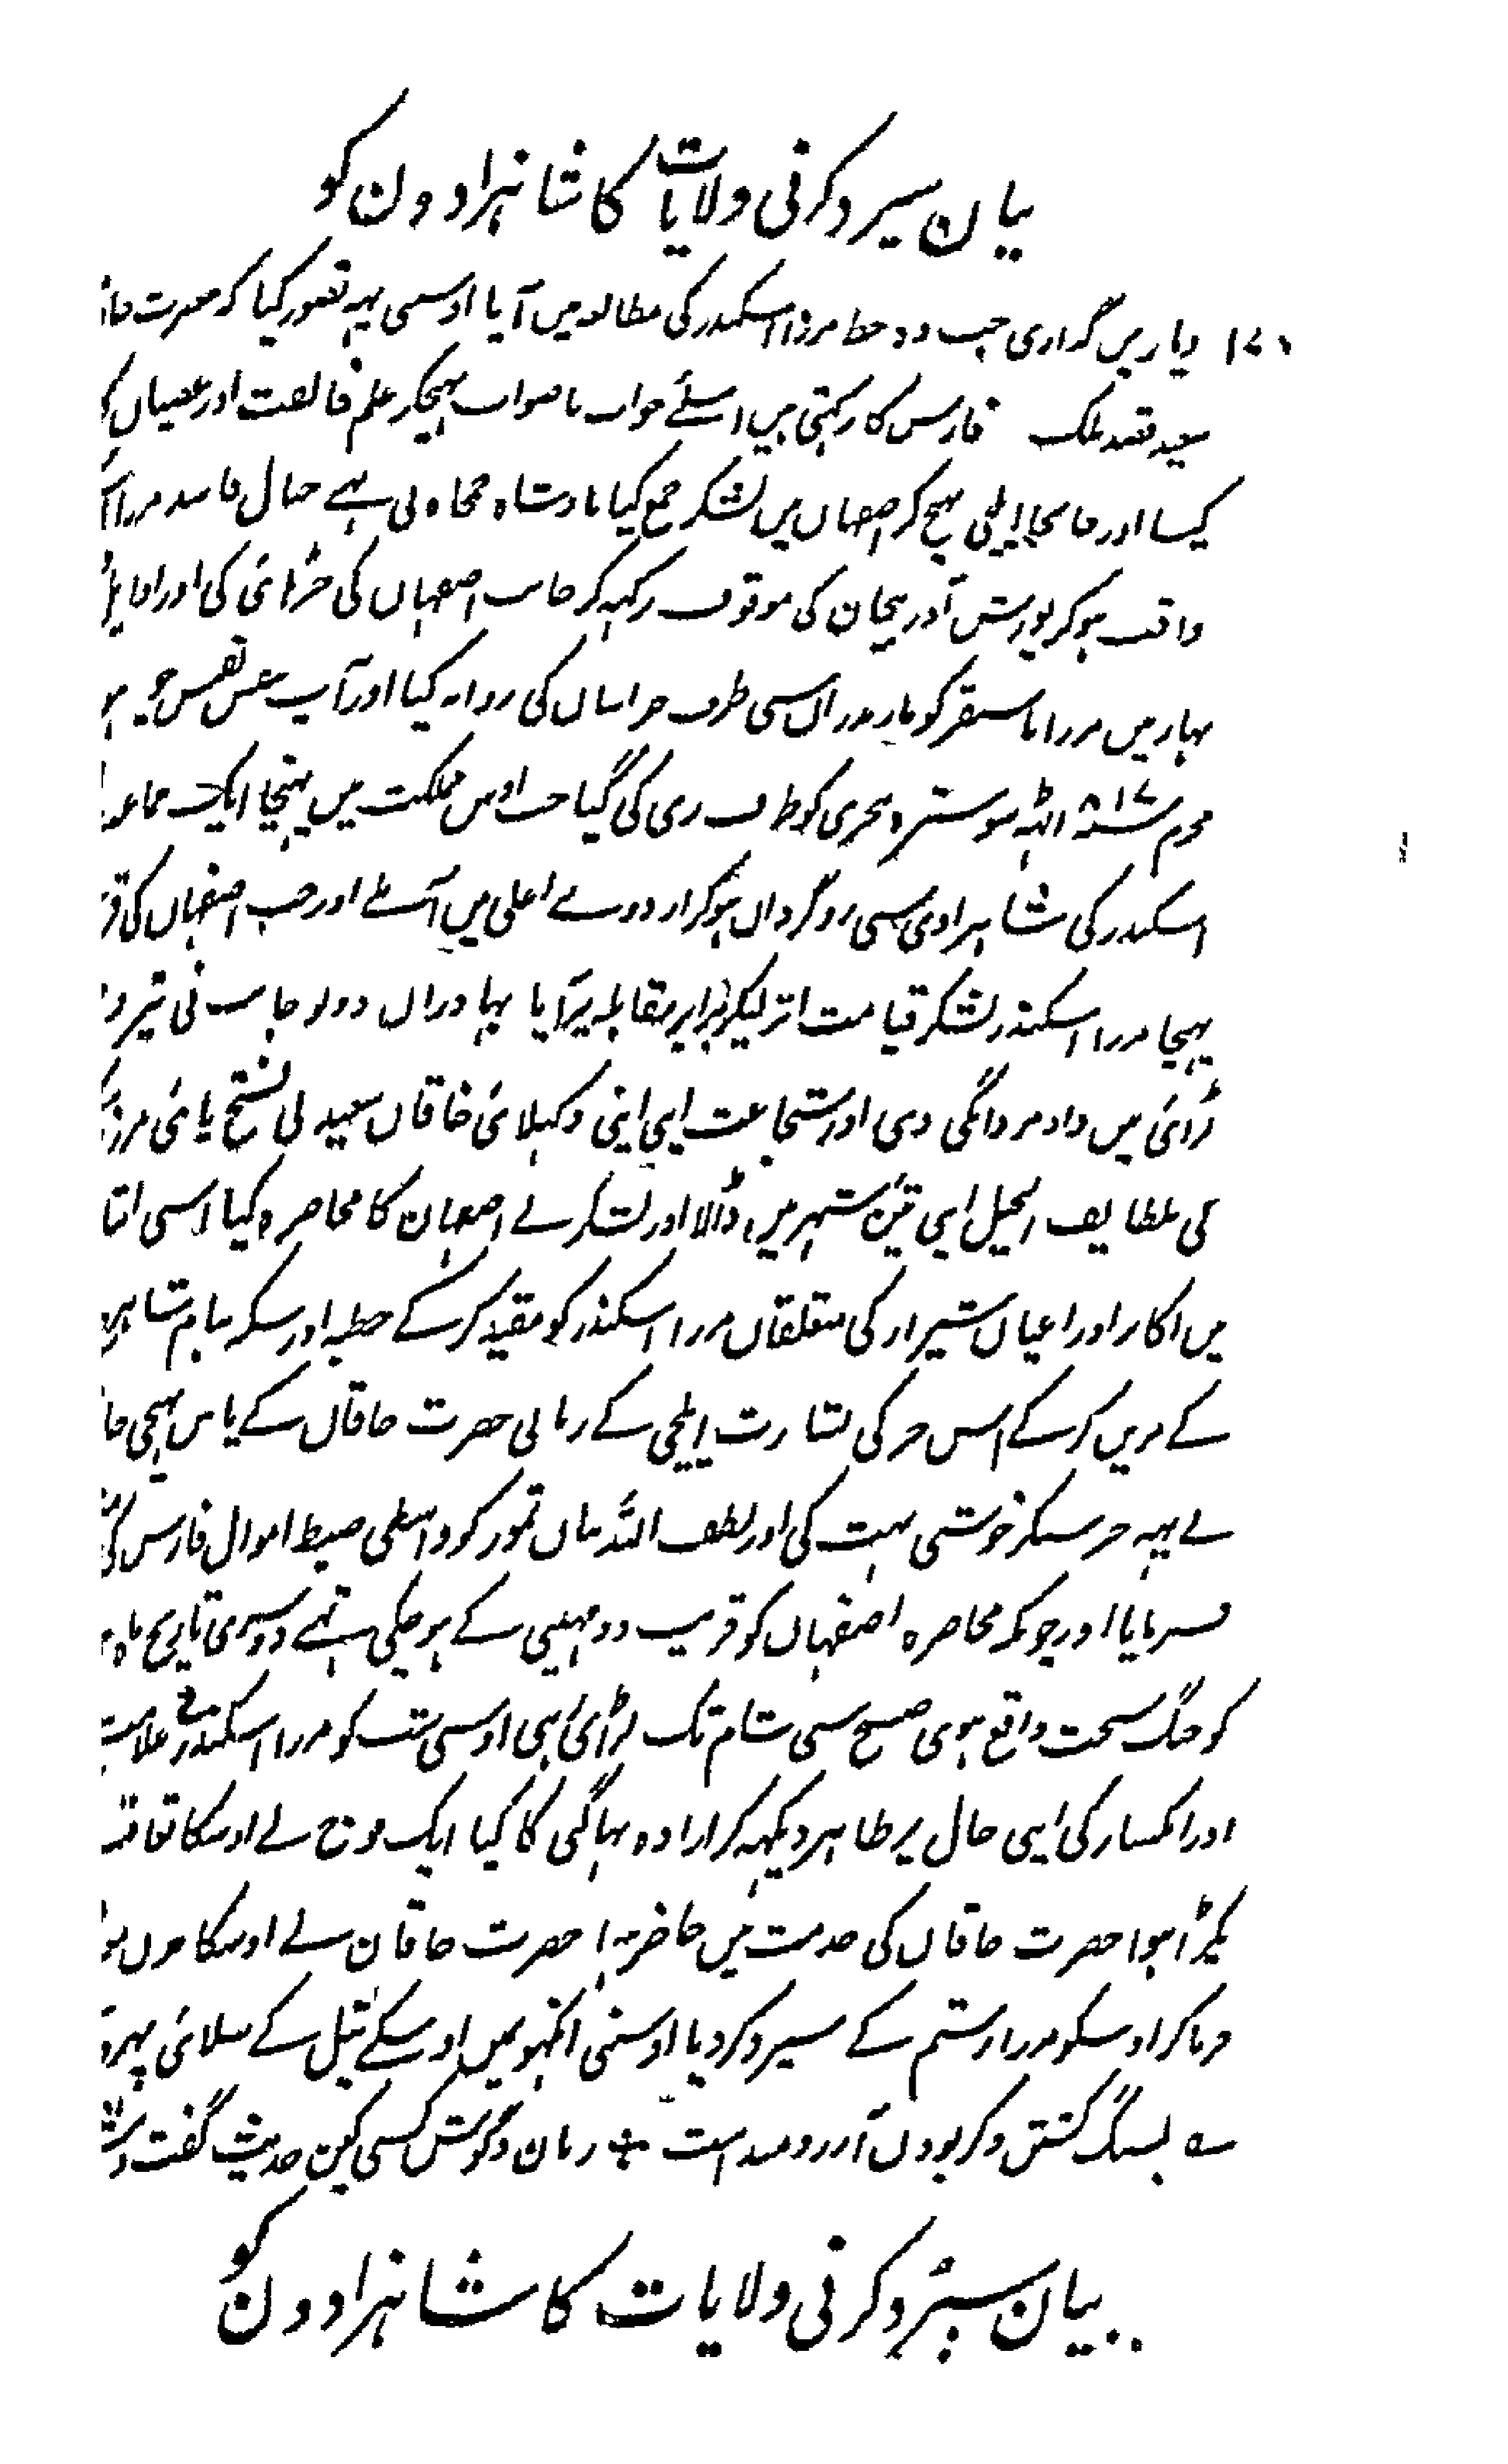 بیان سپرد کرنی ولایات کا شاہزادون کو
دیا ریس گذاری جب وہ خط مرزا اسکندر کی مطالعہ میں آیا اوسی یہہ تصور کیا کہ حضرت
سعید قصد ملک فارس کا رکہتی ہیں اسلئے جواب ناصواب بہیجکر علم مخالفت اور عصیان
کیسا اور جا بجا ایلچی بہیج کر اصفہان میں لشکر جمع کیا بادشاہ حجاہ نی ہے خیال فاسد مرزا
واقف ہوکر یورش آذربیجان کی موقوف رکہہ کر جانب اصفہان کی چڑہائی کی اور
بہار میں مرزا بایسنقر کو مازندران سی طرف خراسان کی روانہ کیا اور آپ بنفس نفیس
محرم ۸۱۷ اٹہہ سو سترہ ہجری کو طرف ری کی گیا جب اوس مملکت میں پہنچا ایک جماعت
اسکندر کی شاہزادی سی روگردان ہوکر اردوے اعلی میں آملے اور جب اصفہان کی
پہنچا مرزا اسکندر لشکر قیامت اثر لیکر برابر مقابلہ پر آیا بہادران دونو جانب نی تیر و
لڑائی میں داد مردانگی دی اور شجاعت اپنی اپنی دکہلائی خاقان سعید نی فتح پائی مرزا
نی بلطایف الحیل اپنی تئین شہر میں ڈالا اور لشکر نے اصفہان کا محاصرہ کیا اسی اثنا
میں اکابر اور اعیان شیراز کی متعلقان مرزا اسکندر کو مقید کر کے خطبہ اور سکہ بنام
کے مزین کر کے اس خبر کی بشارت ایلچی کے زبانی حضرت خاقان کے پاس بہیجی
نے یہہ خبر سنکر خوشی بہت کی اور لطف اللہ بیان تمور کو واسطی ضبط اموال فارس
فرمایا اور چونکہ محاصرہ اصفہان کو قریب دو مہینی کے ہو چکی تہے دوسری تاریخ ماہ
کو جنگ سخت واقع ہوی صبح سی شام تک لڑائی رہی اوسی شب کو مرزا اسکندر نے
اور انکسار کی اپنی حال پر ظاہر دیکہہ کر ارادہ بہاگنی کا کیا ایک فوج نے اوسکا
پکڑا ہوا حضرت خاقان کی خدمت میں حاضر ہوا حضرت خاقان نے اوسکا خون
فرماکر اوسکو مرزا رستم کے سپرد کردیا اوسنی انکہو میں اوسکے نیل کے سلائی
بسنگ گشتن و کر بودن آرزومند است زبان و گوش کسی کین حدیث گفت و
بیان سپرد کرنی ولایات کا شاہزادون کو